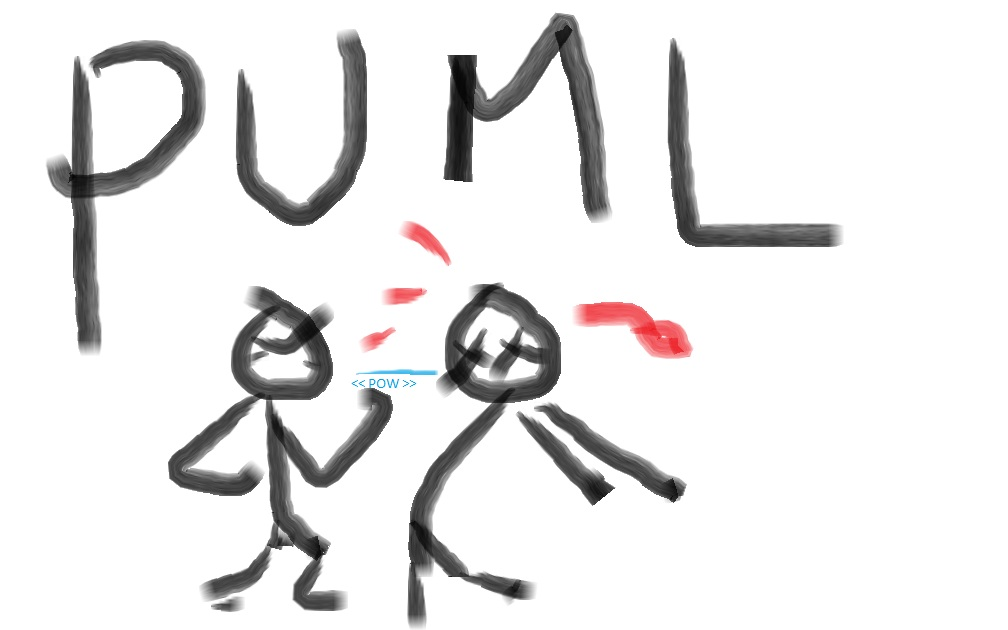 PUML
<< POW >>